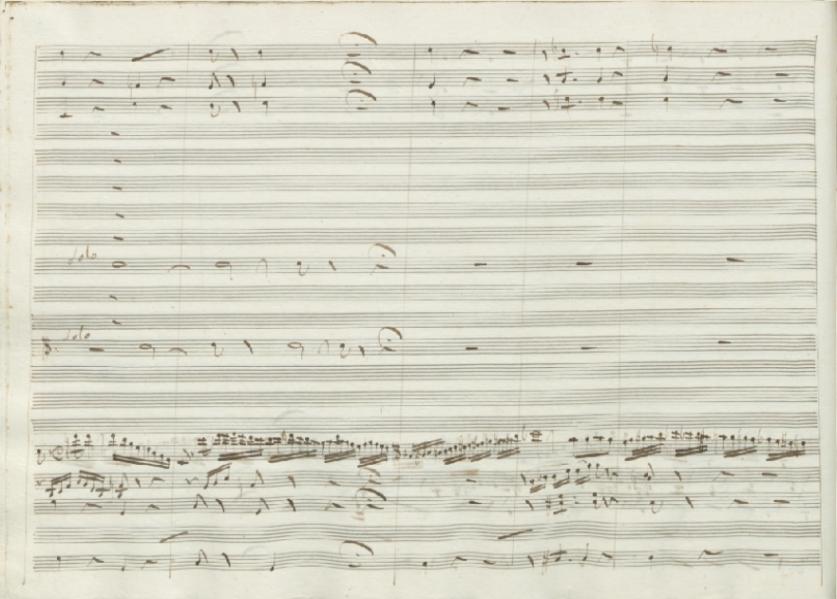 Solo
Solo